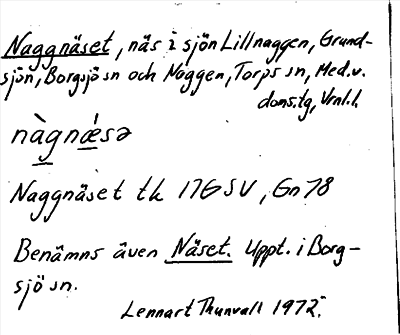 Naggnäset, näs i sjön Lillnaggen, Grund-
sjön, Borgsjö sn och Naggen, Torps sn, Med.v.
doms.tg, Vrnl.l.
nàgnǽsə
Naggnäset tk 17G SV, Gn 78
Benämns även Näset. Uppt. i Borg-
sjö sn.
Lennart Thunvall 1972.